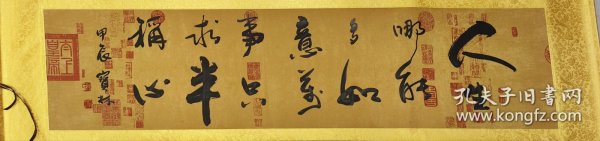 人生
哪能
多如
意万
事只
求半
称心
甲辰 宝林
孔夫子旧书网
www.kongfz.com